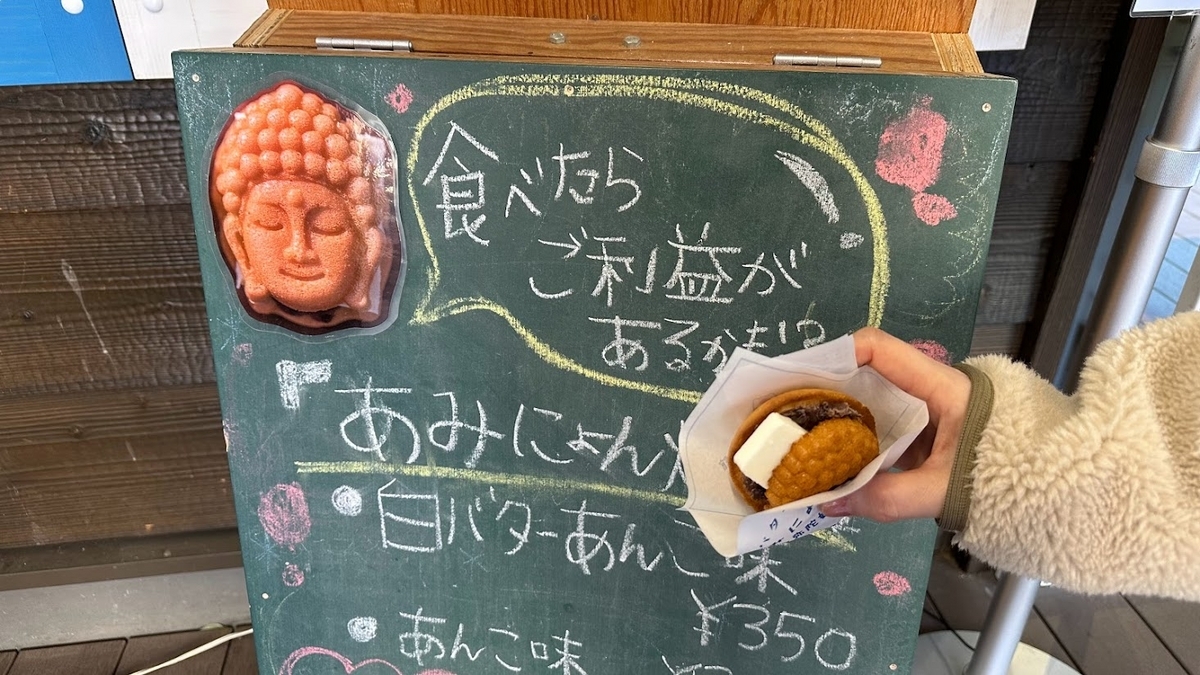 食べたら
ご利益が
あるかも!?
『あみにょん
・白バターあんこ味
¥350
・あんこ味